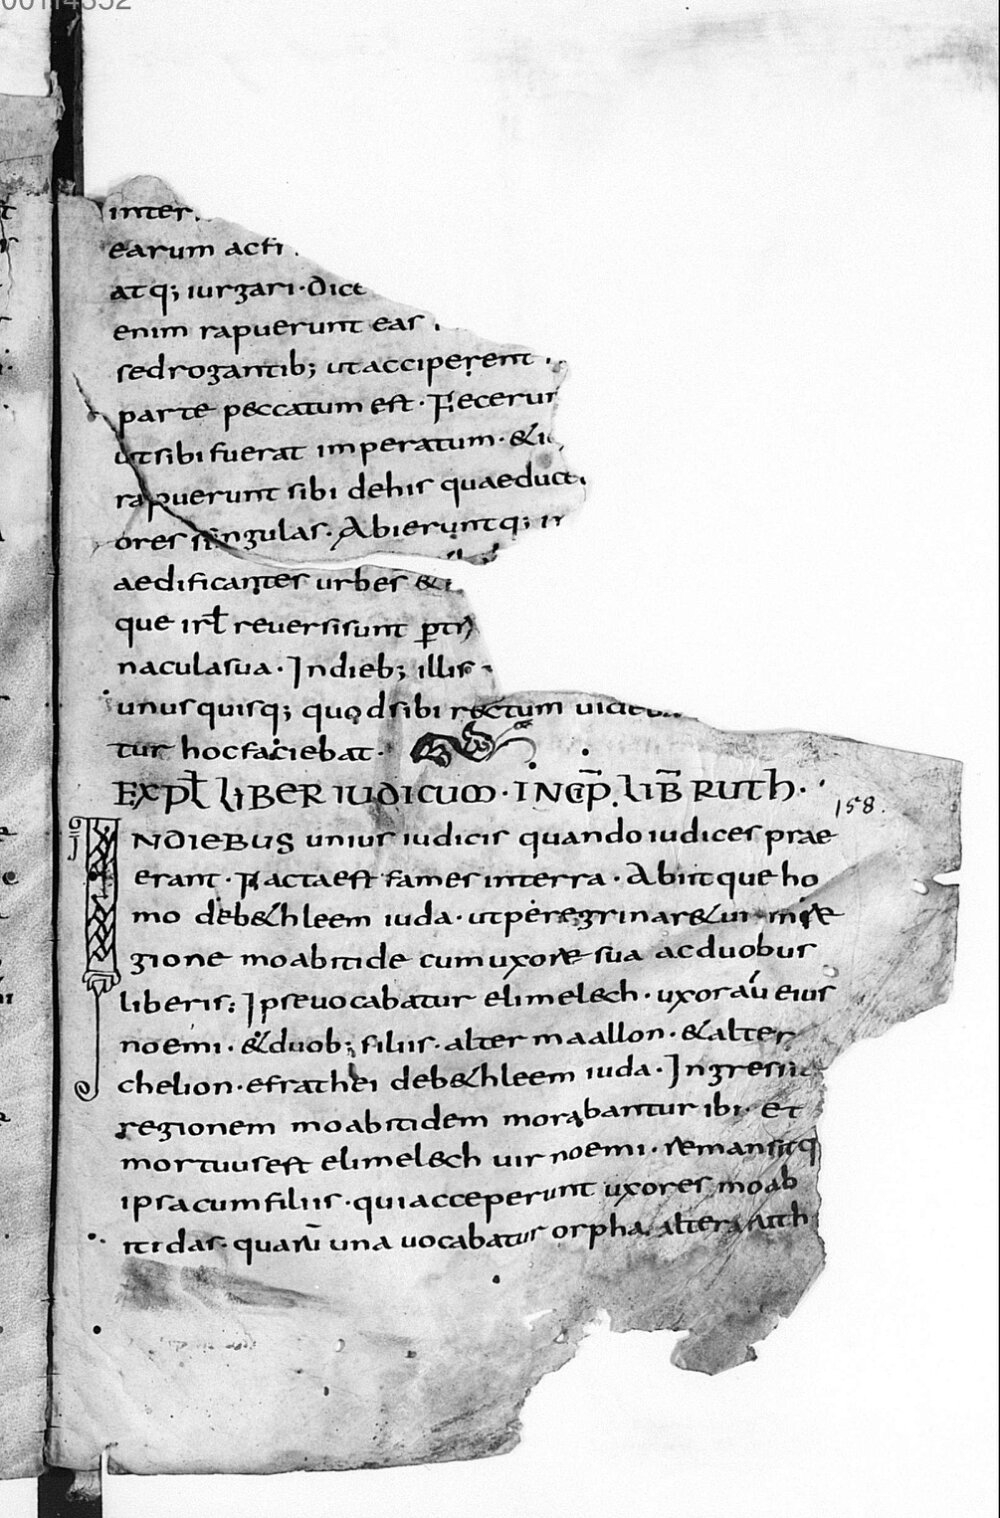 inter
earum acti
atq; iurgari. Dice
enim rapuerunt eas
sed rogantib; ut acciperent
parte peccatum est. Fecerun
ut sibi fuerat imperatum. &
rapuerunt sibi de his quae duce
ores singulas. Abieruntq; in
aedificantes urbes &
que irl̄ reuersi sunt ꝑ tri
nacula sua. In dieb; illis
unusquisq; quod sibi rectum uide
tur hoc faciebat.
EXPL̄ LIBER IUDICUM. INCP̄. LIB̄ RUTH.
158.
IN DIEBUS unius iudicis quando iudices prae
erant. Facta est fames in terra. Abiit que ho
mo de b&hleem iuda. ut peregrinar&ur in re
gione moabitide cum uxore sua ac duobus
liberis: Ipse uocabatur elimelech. uxor aū eius
noemi. & duob; filiis. alter maallon. & alter
chelion. efrathei de b&hleem iuda. Ingressi
regionem moabitidem morabantur ibi. et
mortuus est elimelech uir noemi. remansitq
ipsa cum filiis. qui acceperunt uxores moab
itidas. quarū una uocabatur orpha. altera ruth